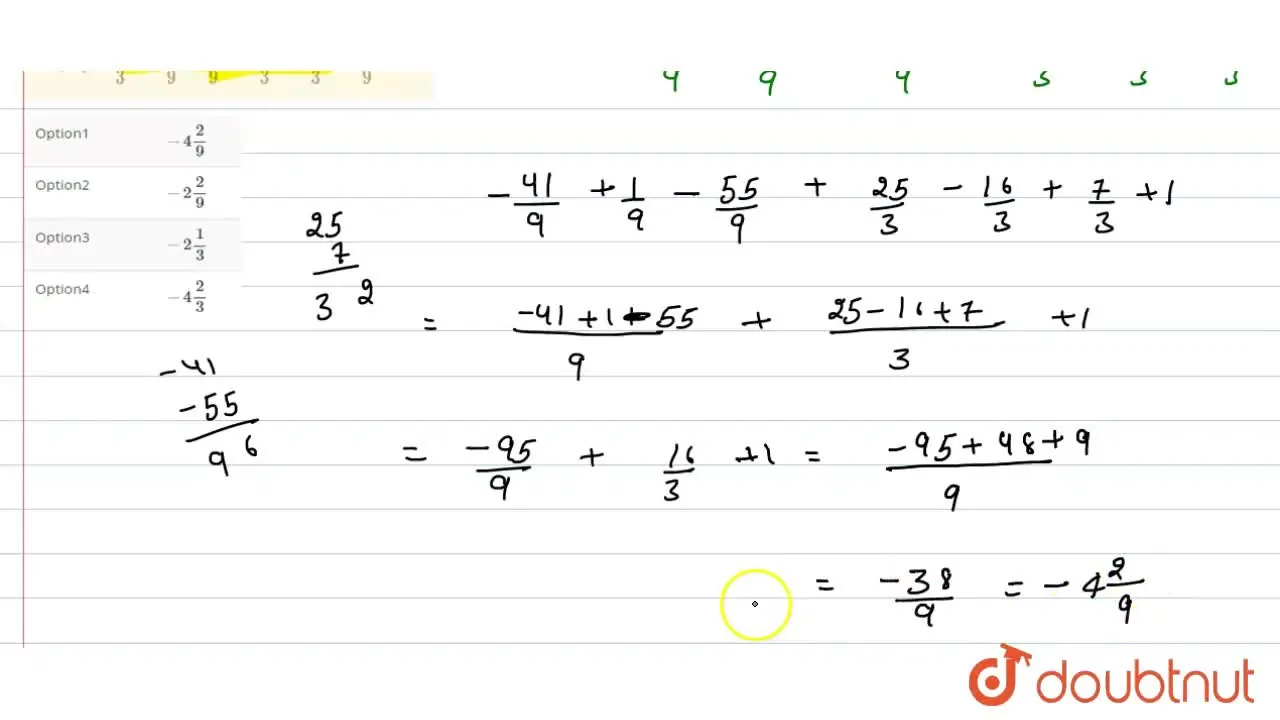 3 9 9 3 3 9
4 9 4 3 3 3
Option1 -4 2/9
Option2 -2 2/9
Option3 -2 1/3
Option4 -4 2/3
-41/9 + 1/9 - 55/9 + 25/3 - 16/3 + 7/3 + 1
25
7
3 2
= (-41 + 1 - 55)/9 + (25 - 16 + 7)/3 + 1
-41
-55
9 6
= -95/9 + 16/3 + 1 = (-95 + 48 + 9)/9
= -38/9 = -4 2/9
doubtnut